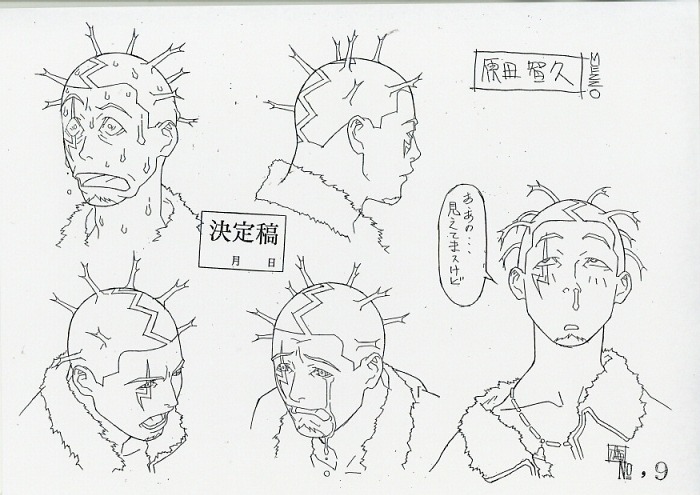 原田 智久
OMNES
決定稿
月 日
あ、あの、、、
見えてますけど
No, 9